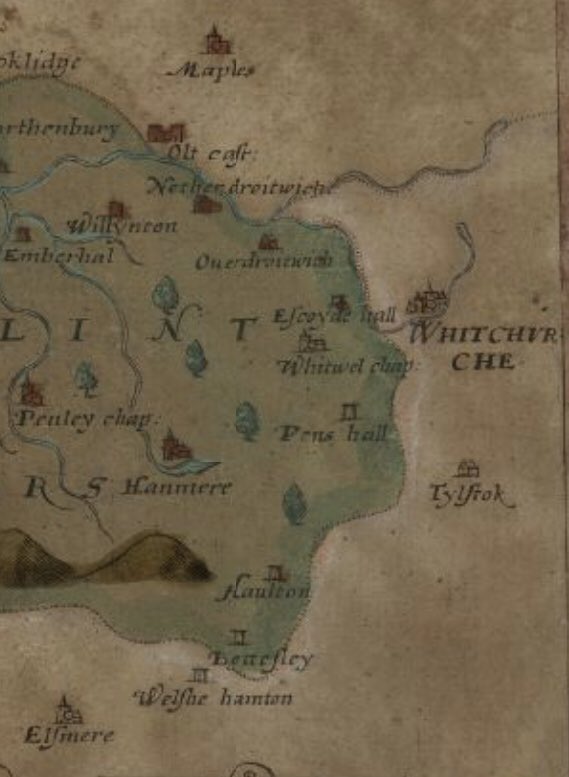 oklidge
Maples
orthenbury
Olt cast:
Nether droitwiche
Willynton
Emberhal
Ouerdroitwich
L I N T
Escoyde hall
WHITCHVR
CHE
Whitwel chap:
Penley chap:
Pens hall
R S
Hanmere
Tylstok
Haulton
Bettesley
Welshe hamton
Elsmere